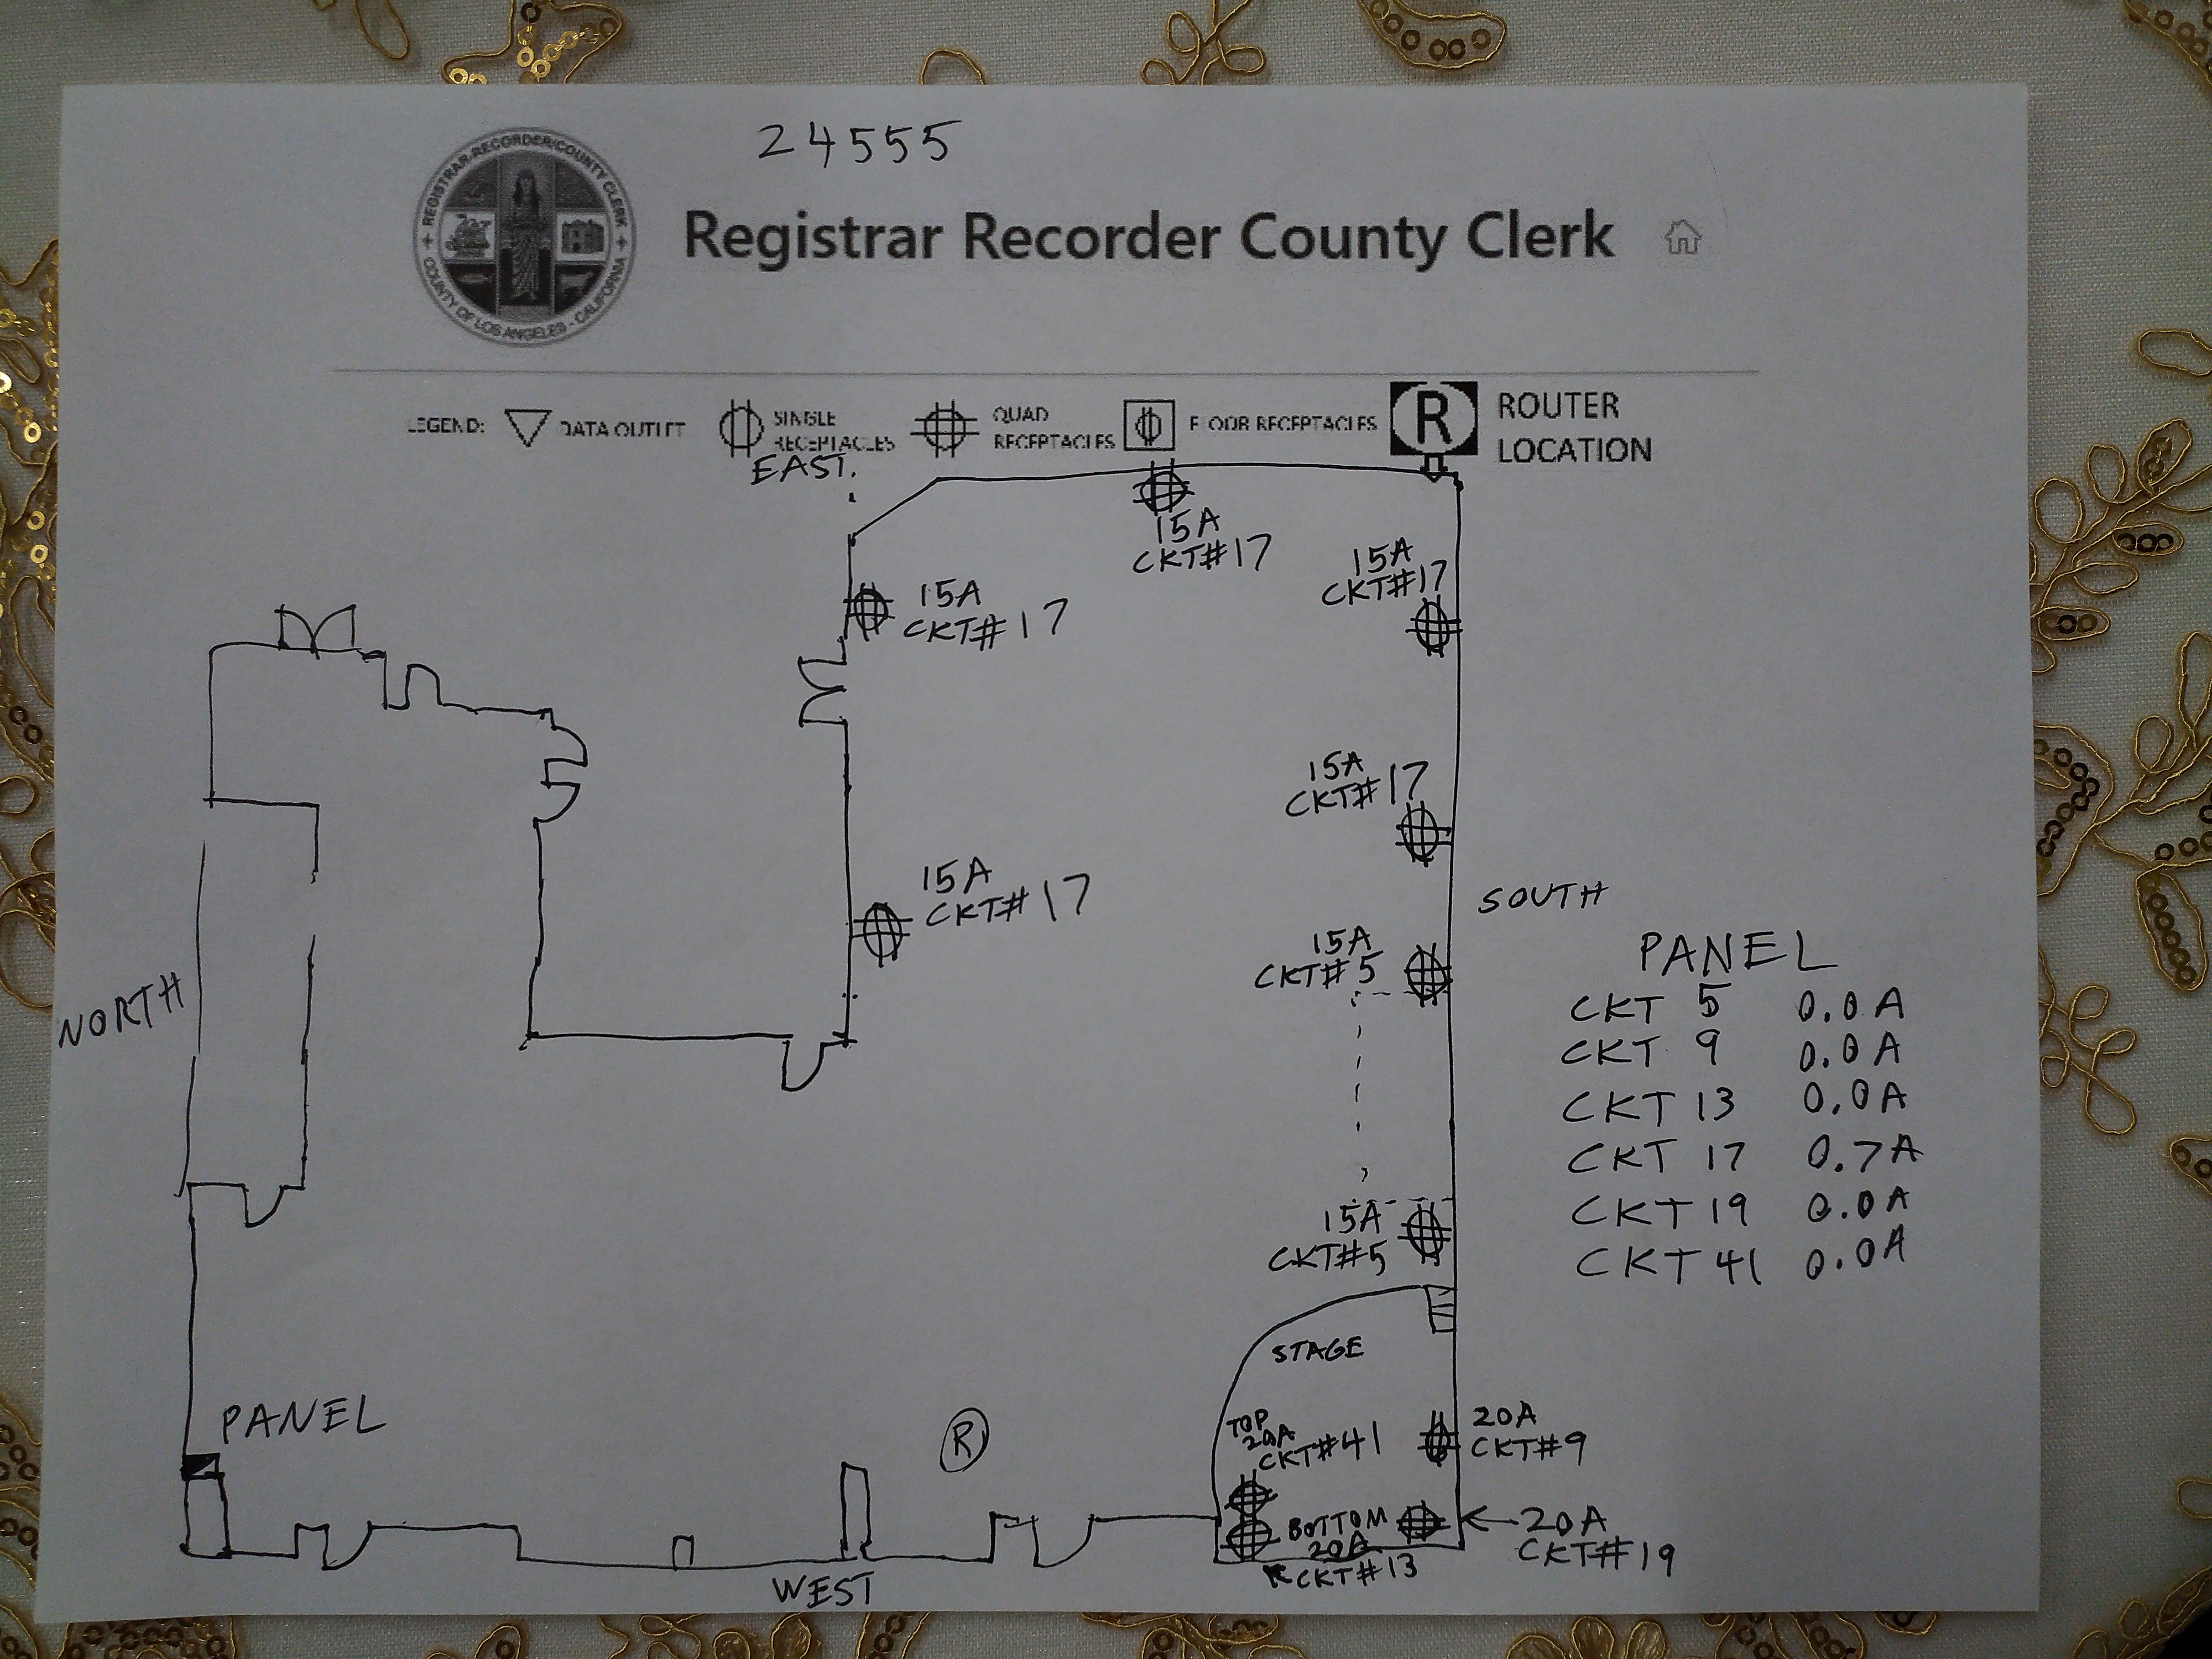 24555
REGISTRAR-RECORDER/COUNTY CLERK
COUNTY OF LOS ANGELES - CALIFORNIA
Registrar Recorder County Clerk
LEGEND:
DATA OUTLET
SINGLE
RECEPTACLES
QUAD
RECEPTACLES
FLOOR RECEPTACLES
R
ROUTER
LOCATION
EAST.
15A
CKT#17
15A
CKT#17
15A
CKT# 17
15A
CKT#17
15A
CKT# 17
SOUTH
15A
CKT# 5
NORTH
PANEL
CKT 5 0.0A
CKT 9 0.0A
CKT 13 0.0A
CKT 17 0.7A
CKT 19 0.0A
CKT 41 0.0A
15A
CKT#5
STAGE
PANEL
R
TOP
20A
CKT#41
20A
CKT#9
BOTTOM
20A
CKT#13
20A
CKT#19
WEST